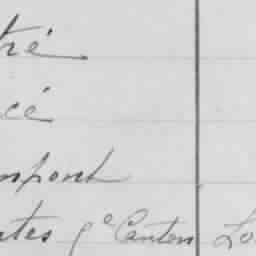 tré
cé
mpont
ntes 9e Canton Lo